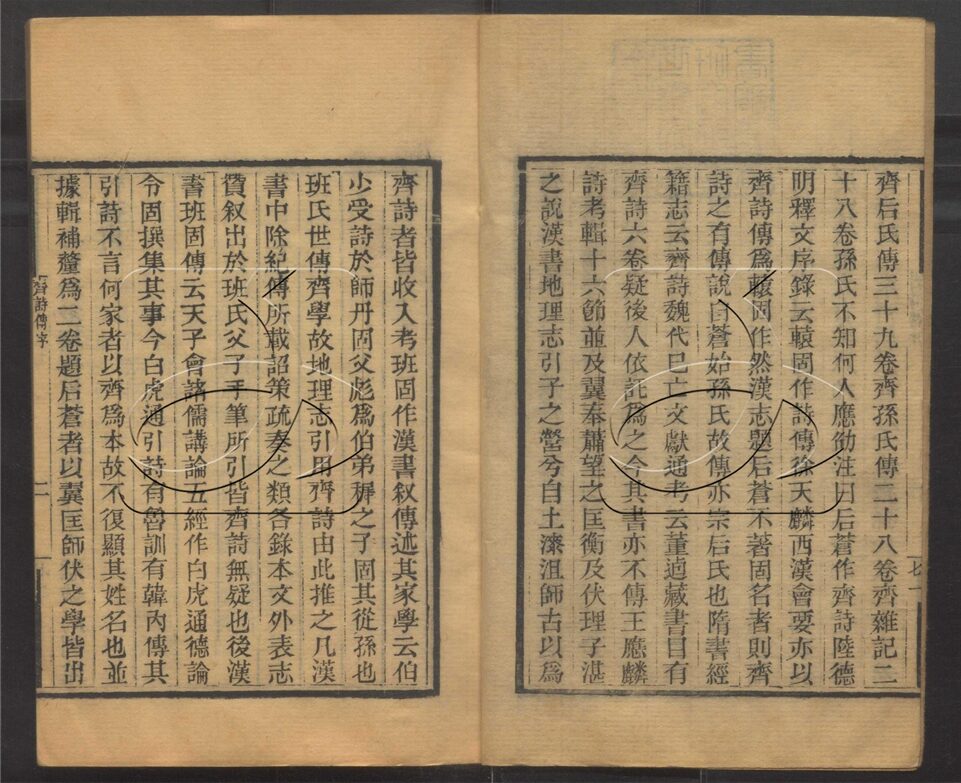 齊后氏傳三十九卷齊孫氏傳二十八卷齊雜記二
十八卷孫氏不知何人應劭注曰后蒼作齊詩陸德
明釋文序錄云轅固作詩傳徐天麟西漢會要亦以
齊詩傳爲轅固作然漢志題后蒼不著固名者則齊
詩之有傳說自蒼始孫氏故傳亦宗后氏也隋書經
籍志云齊詩魏代已亡文獻通考云董逌藏書目有
齊詩六卷疑後人依託爲之今其書亦不傳王應麟
詩考輯十六節並及翼奉蕭望之匡衡及伏理子湛
之說漢書地理志引子之營兮自土漆沮師古以爲
齊詩者皆收入考班固作漢書敘傳述其家學云伯
少受詩於師丹固父彪爲伯弟穉之子固其從孫也
班氏世傳齊學故地理志引用齊詩由此推之凡漢
書中除紀傳所載詔策疏奏之類各錄本文外表志
贊叙出於班氏父子手筆所引皆齊詩無疑也後漢
書班固傳云天子會諸儒講論五經作白虎通德論
令固撰集其事今白虎通引詩有魯訓有韓內傳其
引詩不言何家者以齊爲本故不復顯其姓名也並
據輯補釐爲二卷題后蒼者以翼匡師伏之學皆出
齊詩傳序
二